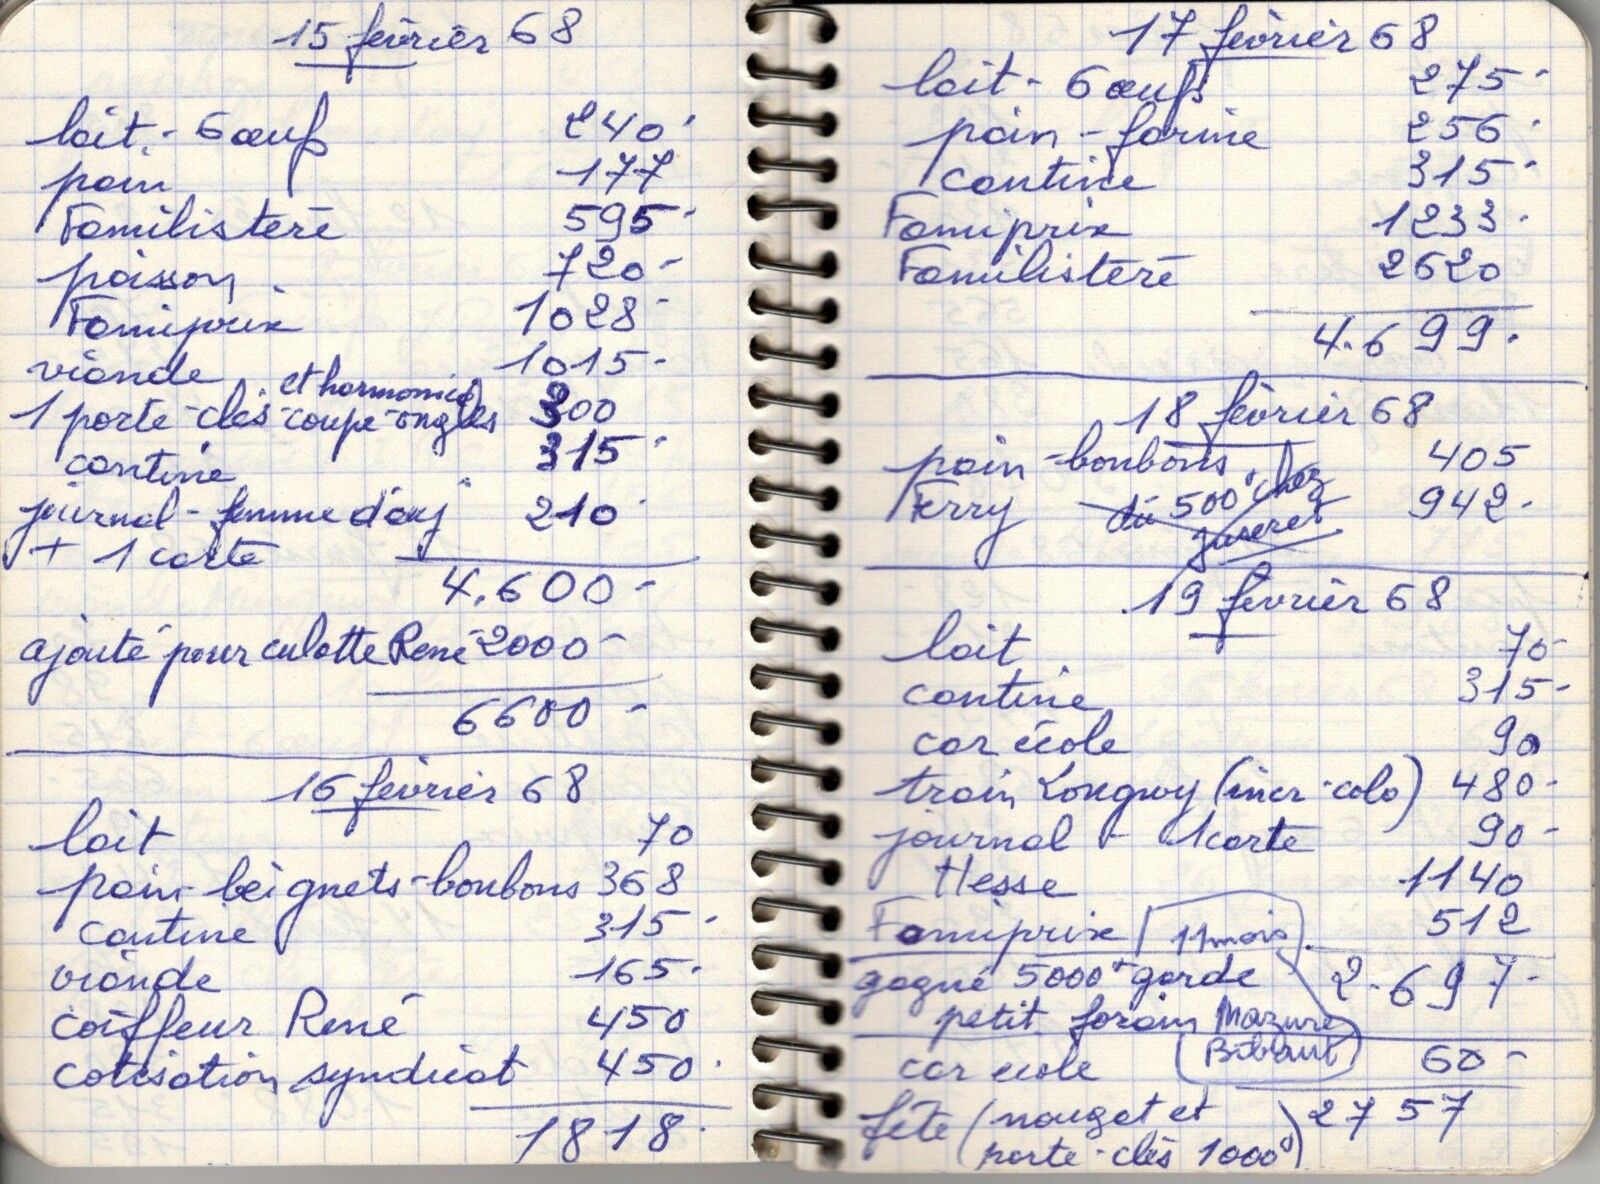 15 février 68
lait - 6 œufs 240
pain 177
Familistère 595
poisson 720
Famiprix 1028
viande 1015
et harmonica
1 porte-clés-coupe-ongles 300
cantine 315
journal - femme d'auj 210
+ 1 carte
4.600
ajouté pour culotte René 2000
6600
16 février 68
lait 70
pain-beignets-bonbons 368
cantine 315
viande 165
coiffeur René 450
cotisation syndicat 450
1818
17 février 68
lait - 6 œufs 275
pain - farine 256
cantine 315
Famiprix 1233
Familistère 2620
4.699
18 février 68
pain-bonbons 405
Ferry dû 500 chez 942
19 février 68
lait 70
cantine 315
car école 90
train Longwy (inscr-colo) 480
journal - 1 carte 90
Hesse 1140
Famiprix 11 mois 512
gagné 5000 garde 2.697
petit forain Mazure
car école 60
fête (nougat et 2757
porte-clés 1000)